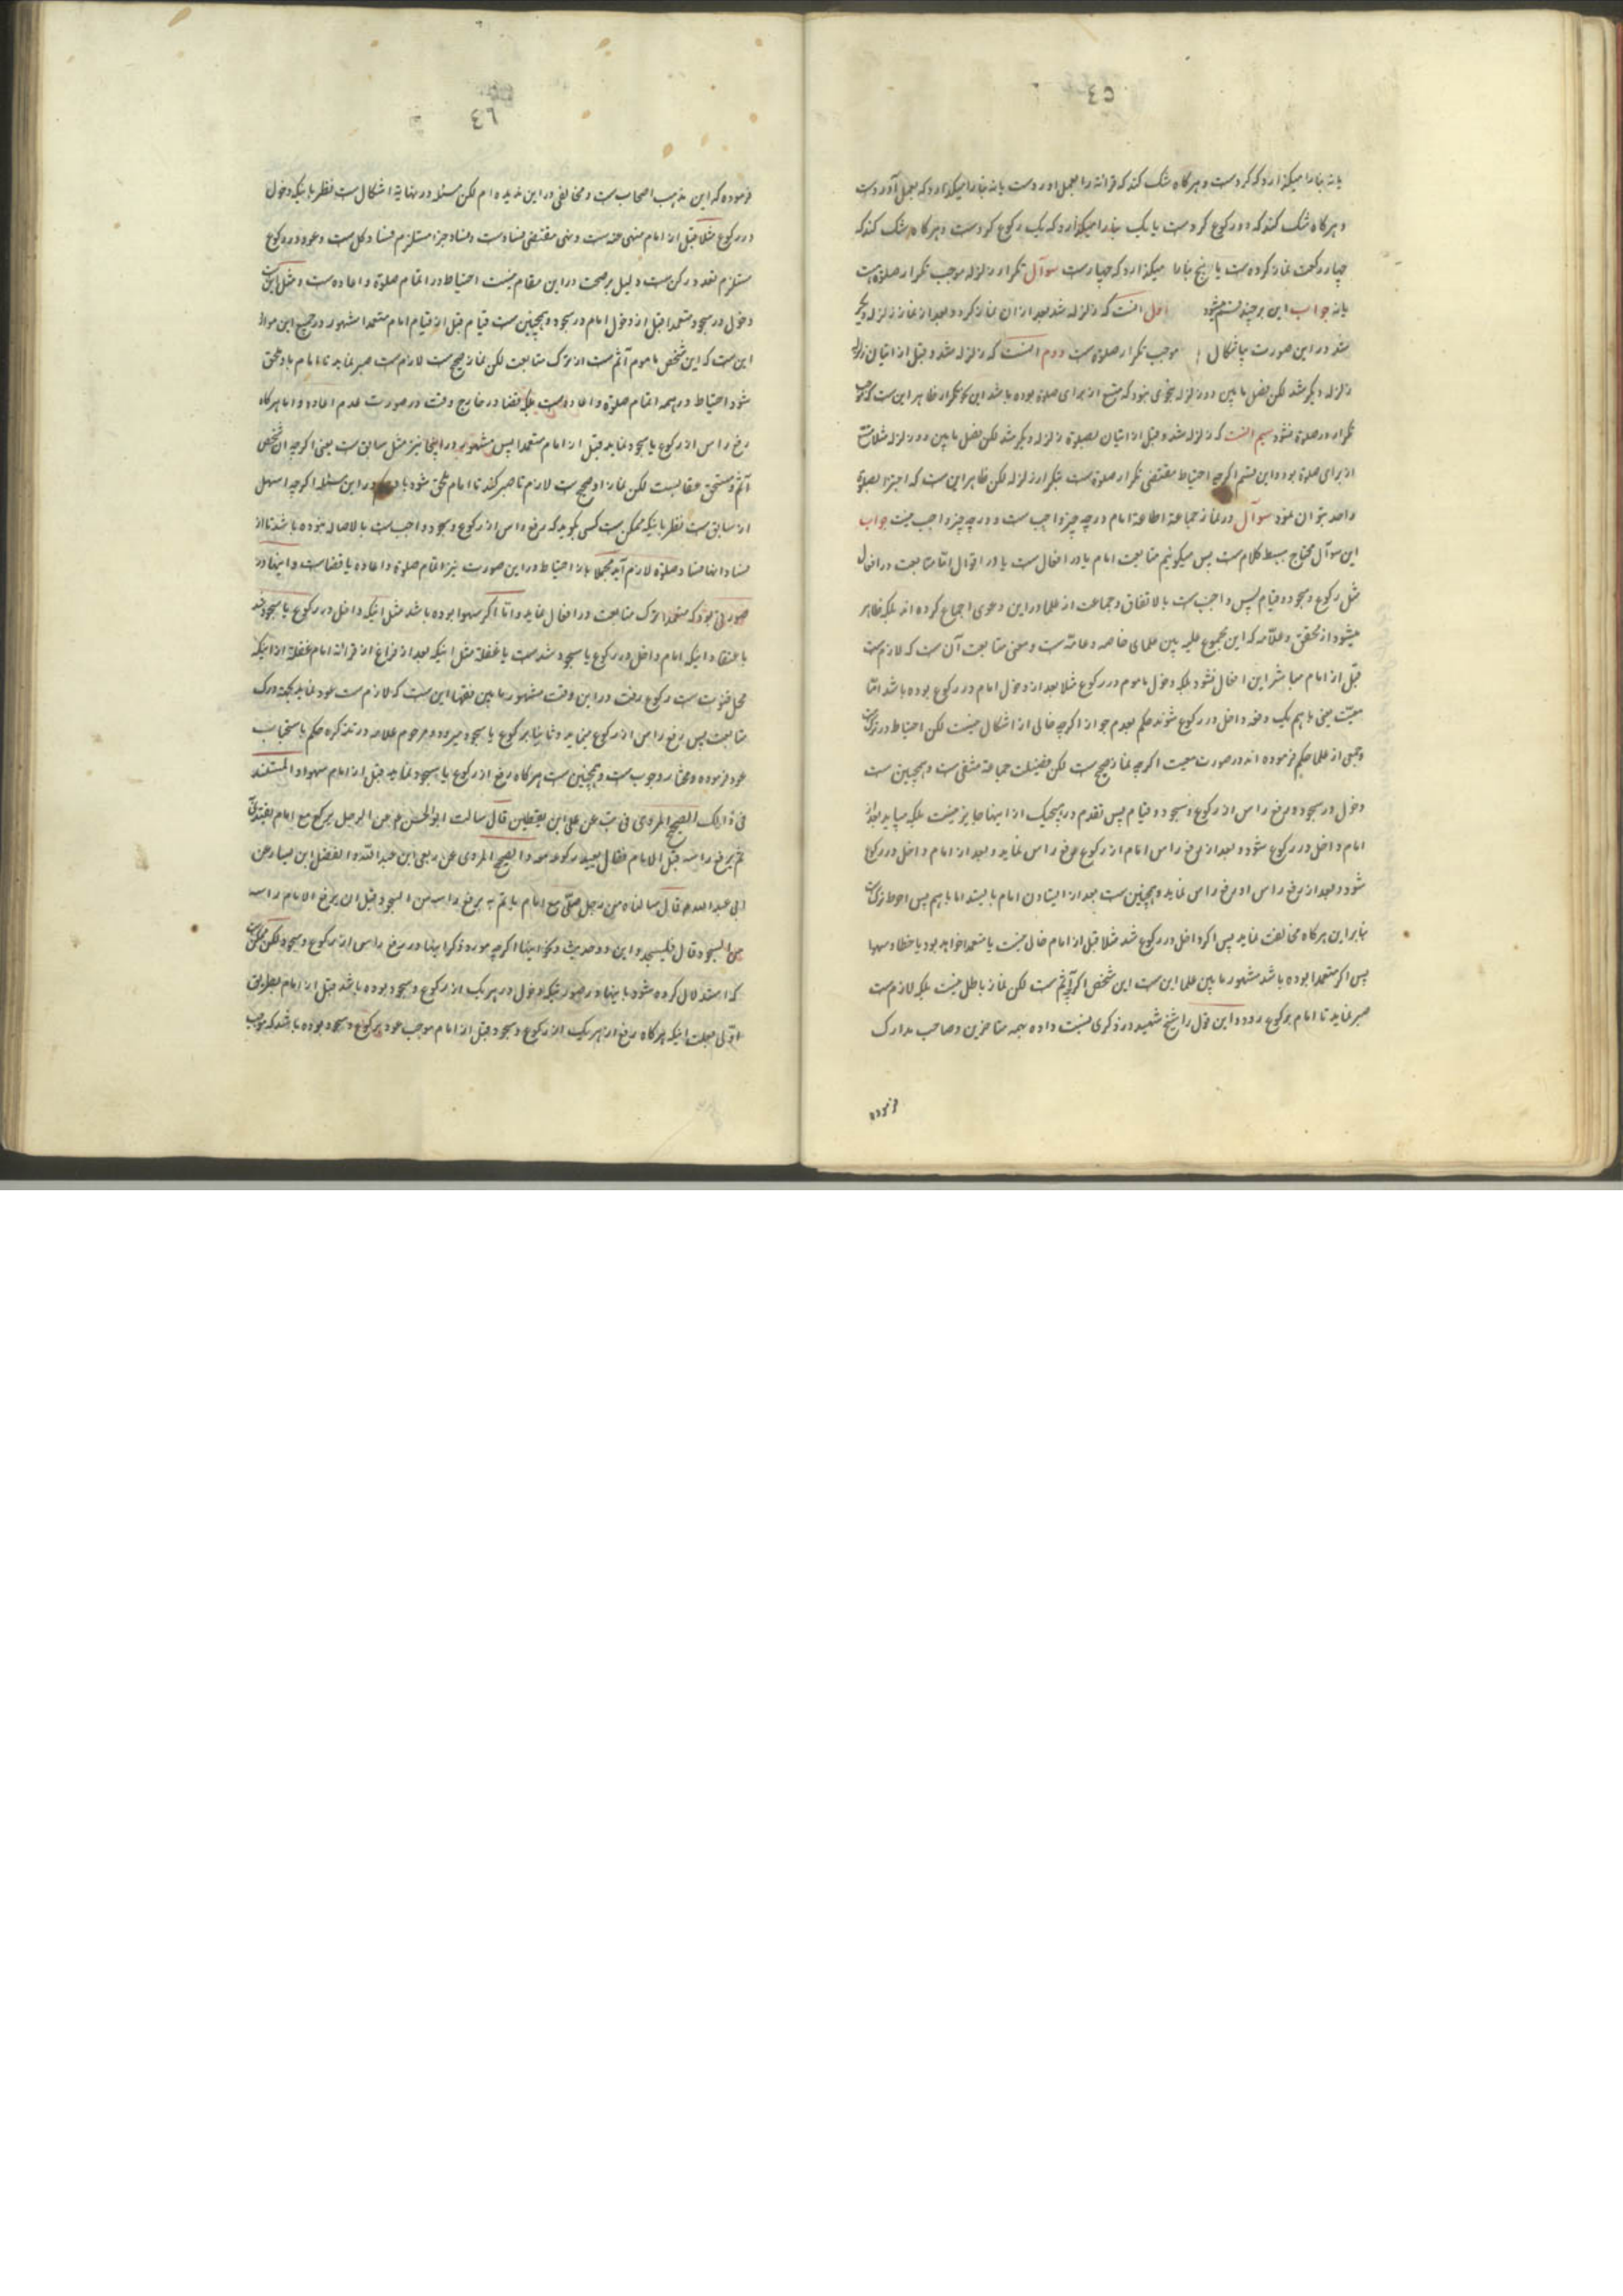 ٤٥
یا نه بنا را میگذارد که کرده است و هرگاه شک کند که قرائة را بعمل آورده است یا نه بنا را میگذارد که بعمل آورده است
و هرگاه شک کند که دو رکوع کرده است یا یک بنا را میگذارد که یک رکوع کرده است و هرگاه شک کند که
چهار رکعت نماز کرده است یا پنج بنا را میگذارد که چهار است سوآل تکرار زلزله موجب تکرار صلوة است
یا نه جواب این بر چند قسم میشود اول آنست که زلزله شد بعد از آن نماز کرد و بعد از نماز زلزله دیگر
شد در این صورت بی اشکال موجب تکرار صلوة است دوم آنست که زلزله شد و قبل از اتیان
زلزله دیگر شد لکن فصل ما بین دو زلزله بنحوی نبود که متسع از برای صلوة بوده باشد این تکرار ظاهر این است که
تکرار در صلوة نشود سیم آنست که زلزله شد و قبل از اتیان بصلوة زلزله دیگر شد لکن فصل ما بین دو زلزله مثلا متسع
از برای صلوة بود و این قسم اگرچه احتیاط مقتضی تکرار صلوة است بتکرار زلزله لکن ظاهر این است که اجتزا بصلوة
واحد بتوان نمود سوآل در نماز جماعة اطاعة امام در چه چیز واجب است و در چه چیز واجب نیست جواب
این سوآل محتاج ببسط کلام است پس میگوئیم متابعت امام یا در افعال است یا در اقوال امّا متابعت در افعال
مثل رکوع و سجود و قیام پس واجب است بالاتفاق و جماعت از علما در این دعوی اجماع کرده اند بلکه ظاهر
میشود از محقق و علّامه که این مجموع علیه بین علمای خاصه و عامّه است و معنی متابعت آن است که لازم است
قبل از امام مباشر این افعال نشود بلکه دخول ماموم در رکوع مثلا بعد از دخول امام در رکوع بوده باشد امّا
معیّت یعنی با هم یک دفعه داخل در رکوع شوند حکم بعدم جواز اگرچه خالی از اشکال نیست لکن احتیاط در ترک
و جمعی از علما حکم فرموده اند در صورت معیت اگرچه نماز صحیح است لکن فضیلت جماعة منتفی است و همچنین است
دخول در سجود و رفع راس از رکوع و سجود و قیام پس تقدم در هیچیک از اینها جایز نیست بلکه میباید بعد از
امام داخل در رکوع شود و بعد از رفع راس امام از رکوع رفع راس نماید و بعد از امام داخل در رکوع
شود و بعد از رفع راس او رفع راس نماید و همچنین است بعد از ایستادن امام بایستد اما با هم پس احوط ترک
بنابراین هرگاه مخالفت نماید پس اگر داخل در رکوع شد مثلا قبل از امام خالی نیست یا متعمدا خواهد بود یا خطا و سهوا
پس اگر متعمدا بوده باشد مشهور ما بین علما این است این شخص اگرچه آثم است لکن نماز باطل نیست بلکه لازم است
صبر نماید تا امام برکوع رود و این قول را شیخ شهید در ذکری نسبت داده بهمه متاخرین و صاحب مدارک
فرموده
٤٦
فرموده که این مذهب اصحاب است و مخالفی در این ندیده ام لکن مسئله در نهایة اشکال است نظر باینکه دخول
در رکوع مثلا قبل از امام منهی عنه است و نهی مقتضی فساد است و فساد جزء مستلزم فساد کل است و عود در رکوع
مستلزم تعدد رکن است و دلیل بر صحت در این مقام نیست احتیاط در اتمام صلوة و اعاده است و مثل
دخول در سجود متعمدا قبل از دخول امام در سجود و همچنین است قیام قبل از قیام امام متعمدا مشهور در جمیع این مواد
این است که این شخص ماموم آثم است از ترک متابعت لکن نماز صحیح است لازم است صبر نماید تا امام باو ملحق
شود احتیاط در همه اتمام صلوة و اعاده است بلکه قضا در خارج وقت در صورت عدم اعاده و اما هرگاه
رفع راس از رکوع یا سجود نماید قبل از امام متعمدا پس مشهور در اینجا نیز مثل سابق است یعنی اگرچه آن شخص
آثم و مستحق عقابست لکن نماز او صحیح است لازم تا صبر کند تا امام ملحق شود باو در این مسئله اگرچه اسهل
از سابق است نظر باینکه ممکن است کسی بگوید که رفع راس از رکوع و سجود واجب است بالاصاله نبوده باشد تا از
فساد آنها فساد صلوة لازم آید مجملا باز احتیاط در این صورت نیز اتمام صلوة و اعاده یا قضا است و اینها در
صورتی بود که متعمدا ترک متابعت در افعال نماید و امّا اگر سهوا بوده باشد مثل اینکه داخل در رکوع یا سجود شد
باعتقاد اینکه امام داخل در رکوع یا سجود شده است یا غفلة مثل اینکه بعد از فراغ از قرائة امام غفلة از اینکه
محل قنوت است رکوع رفت در این وقت مشهور ما بین فقها این است که لازم است عود نماید بجهة درک
متابعت پس رفع راس از رکوع مینماید و ثانیا برکوع یا سجود میرود و مرحوم علامه در تذکره حکم باستحباب
عود فرموده و مختار وجوب است و همچنین است هرگاه رفع از رکوع یا سجود نماید قبل از امام سهوا و المستند
فی ذالک الصحیح المروی فی یب عن علی ابن یقطین قال سالت ابوالحسن ع عن الرجل یرکع مع امام یقتدی به
ثم یرفع راسه قبل الامام فقال یعید رکوعه معه و الصحیح المروی عن ربعی ابن عبد اللّه و الفضل ابن یسار عن
ابی عبد الله ع قال سالناه عن رجل صلّی مع امام یاتم به یرفع راسه من السجود قبل ان یرفع الامام راسه
من السجود قال فلیسجد و این دو حدیث و نحو اینها اگرچه مورد ذکر اینها در رفع راس از رکوع و سجود لکن ممکن است
که استدلال کرده شود باینها در صورتیکه دخول در هر یک از رکوع و سجود بوده باشد قبل از امام بطریق
اولی بعلت اینکه هرگاه رفع از هر یک از رکوع و سجود قبل از امام موجب عود برکوع و سجود بوده باشد که موجب